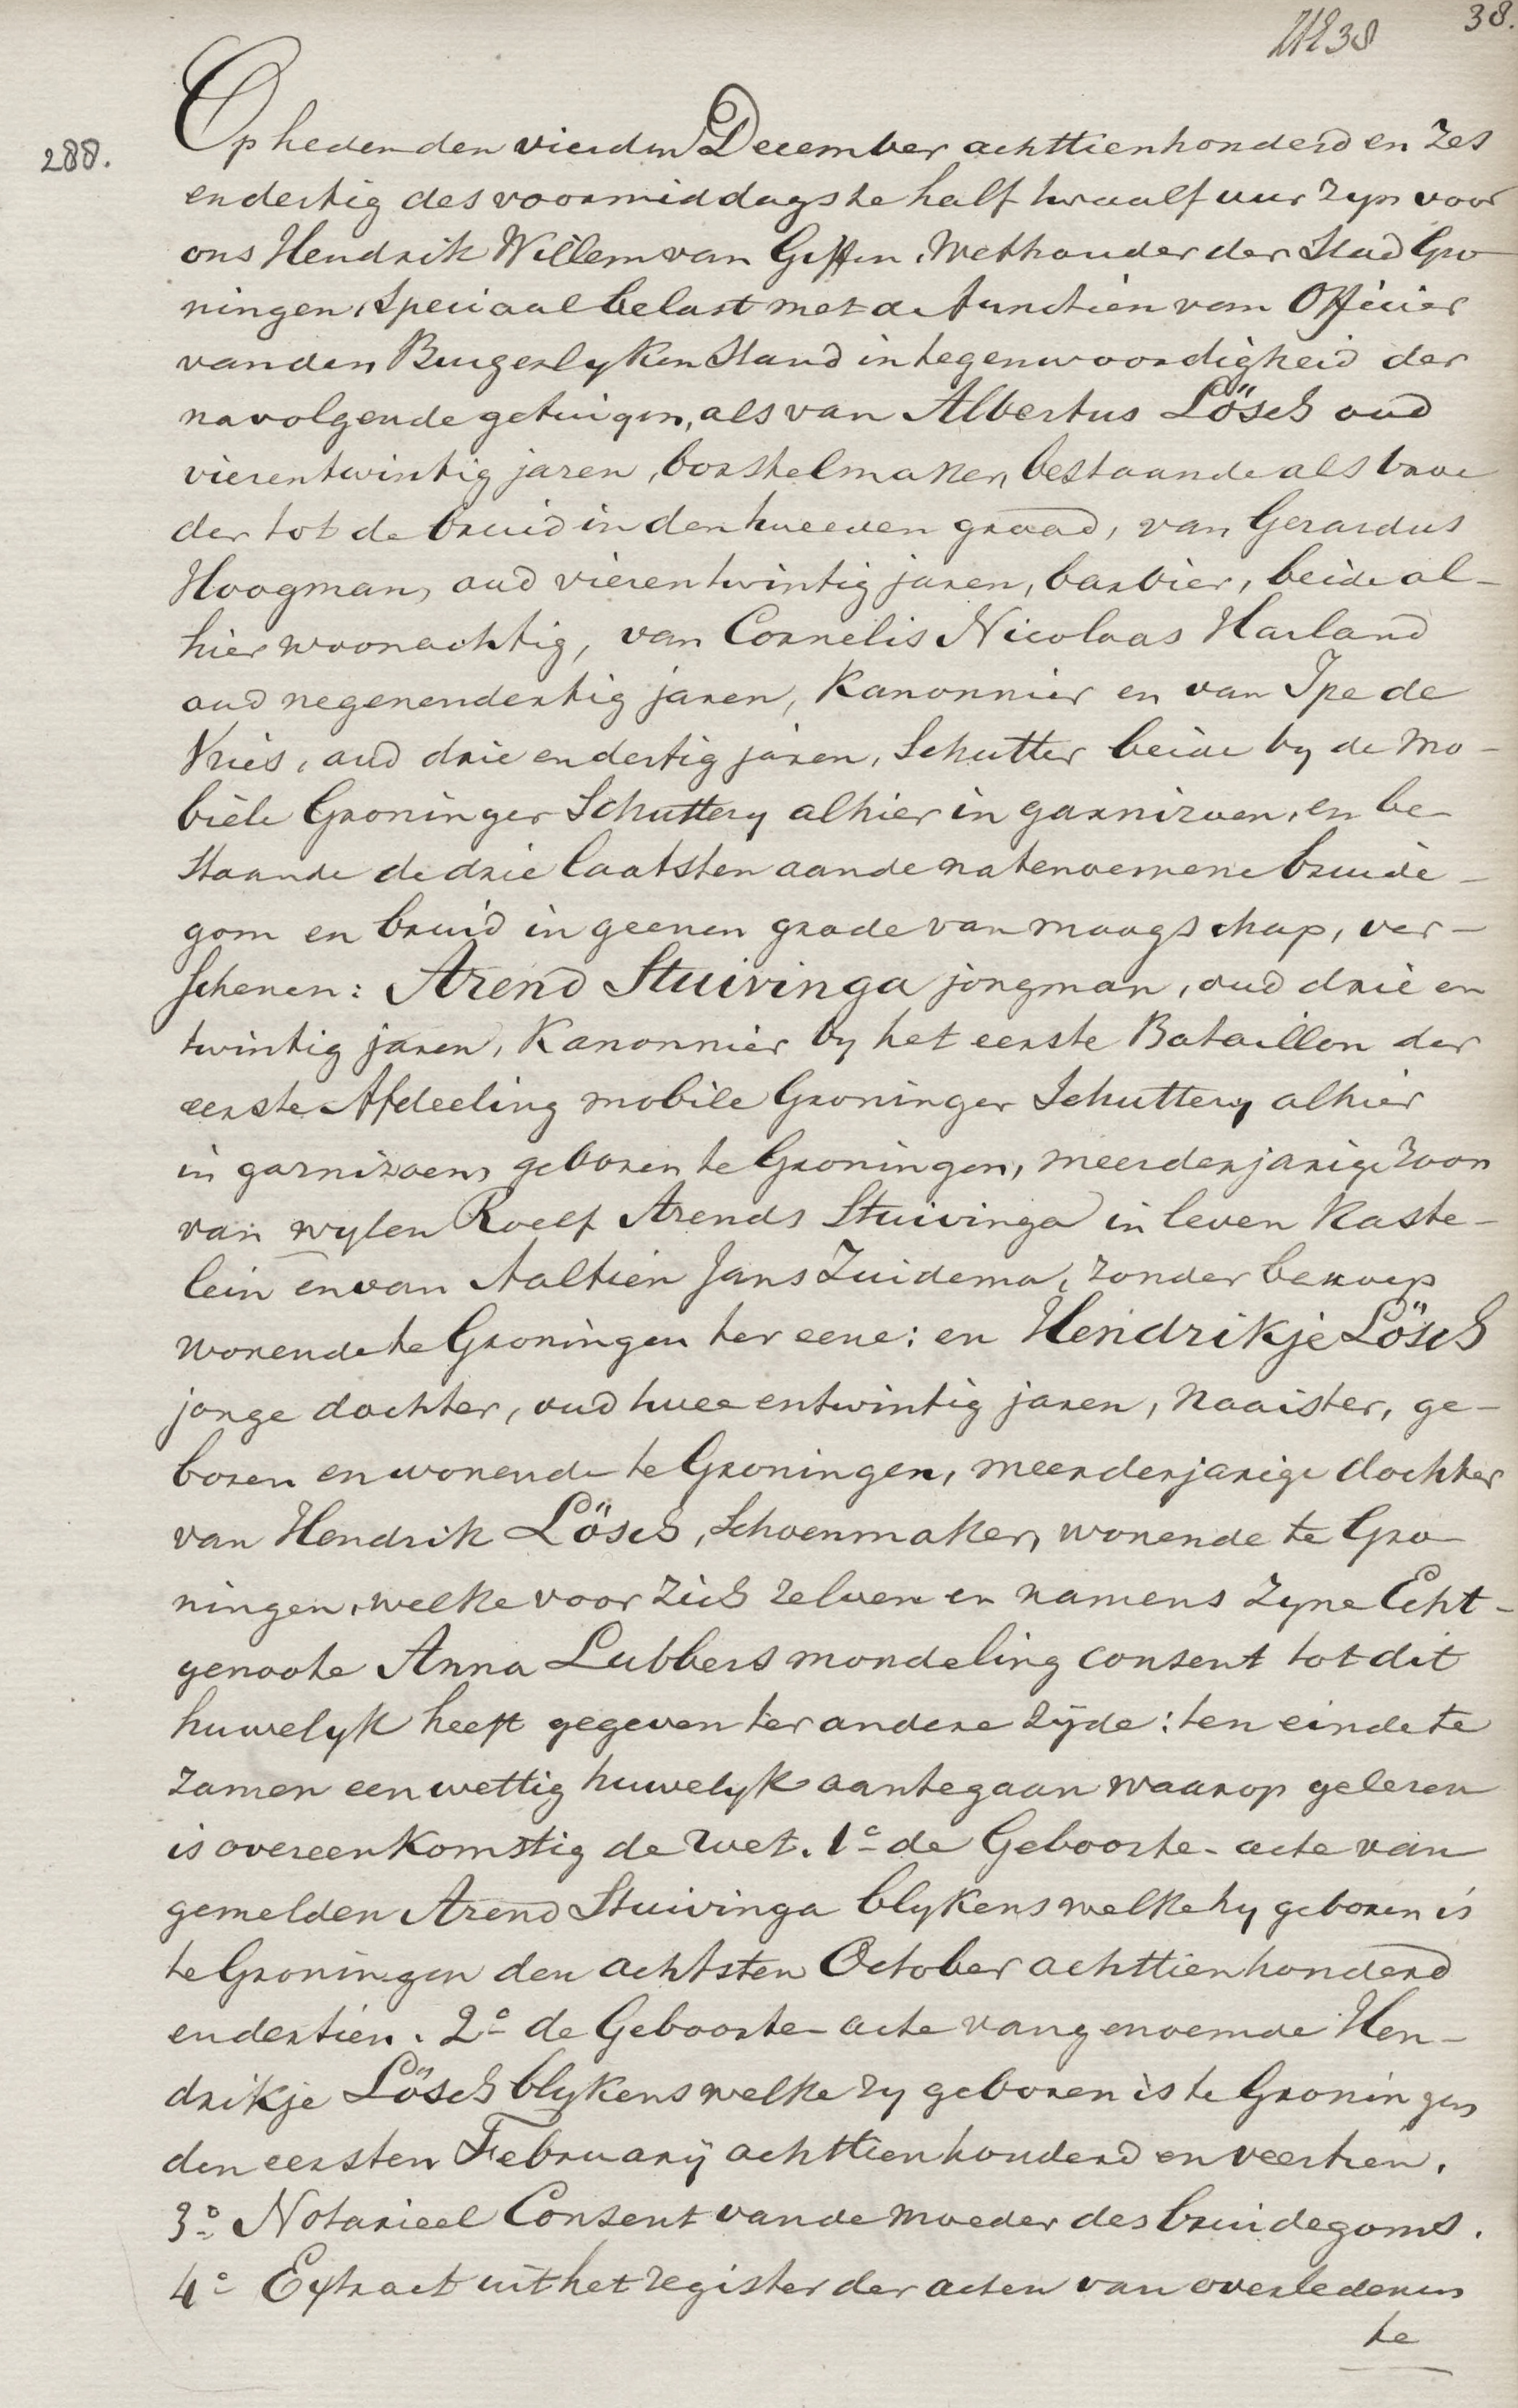 38.
288.
Op heden den vierden December achttienhonderd en zes
en dertig des voormiddags te half twaalf uur zyn voor
ons Hendrik Willem van Giffen, Wethouder der Stad Gro-
ningen, speciaal belast met de functien van Officier
van den Burgerlyken Stand in tegenwoordigheid der
navolgende getuigen, als van Albertus Lösch oud
vierentwintig jaren, borstelmaker, bestaande als broe
der tot de bruid in den tweeden graad, van Gerardus
Hoogman, oud vierentwintig jaren, barbier, beide al-
hier woonachtig, van Cornelis Nicolaas Harland
oud negenendertig jaren, Kanonnier en van Ipe de
Vries, oud drie en dertig jaren, Schutter beide by de mo-
biele Groninger Schuttery alhier in garnizoen, en be-
staande de drie laatsten aan de natenoemene bruide-
gom en bruid in geenen grade van maagschap, ver-
schenen: Arend Stuivinga jongman, oud drie en
twintig jaren, Kanonnier by het eerste Bataillon der
eerste Afdeeling mobile Groninger Schuttery alhier
in garnizoen, geboren te Groningen, meerderjarige zoon
van wylen Roelf Arends Stuivinga in leven Kaste-
lein en van Aaltien Jans Zuidema, zonder beroep
wonende te Groningen ter eene: en Hendrikje Lösch
jonge dochter, oud twee entwintig jaren, Naaister, ge-
boren en wonende te Groningen, meerderjarige dochter
van Hendrik Lösch, Schoenmaker, wonende te Gro-
ningen, welke voor zich zelven en namens zyne Echt-
genoote Anna Lubbers mondeling consent tot dit
huwelyk heeft gegeven ter andere zijde: ten einde te
zamen een wettig huwelyk aantegaan waarop gelezen
is overeenkomstig de wet. 1o de Geboorte-acte van
gemelden Arend Stuivinga blykens welke hy geboren is
te Groningen den achtsten October achttienhonderd
en dertien. 2o de Geboorte-acte van genoemde Hen-
drikje Lösch blykens welke zy geboren is te Groningen
den eersten February achttienhonderd en veertien.
3o Notarieel Consent van de moeder des bruidegoms.
4o Extract uit het register der acten van overledenen
te